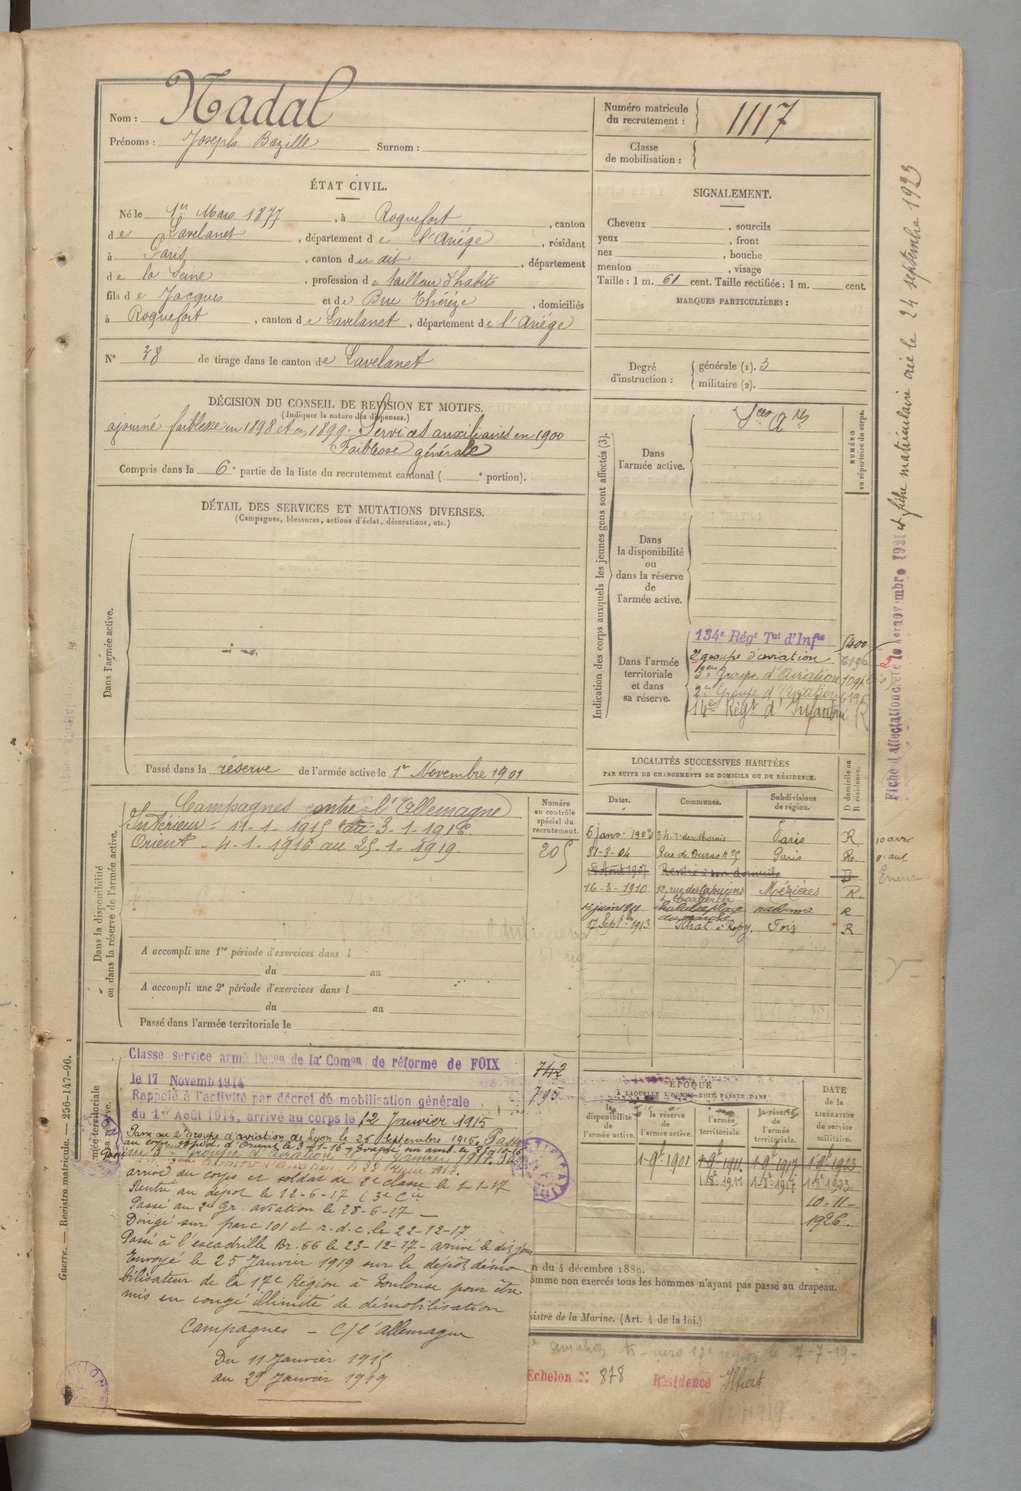 Nom : Nadal
Prénoms : Joseph Bazille Surnom :
Numéro matricule du recrutement : 1117
Classe de mobilisation :
ÉTAT CIVIL.
Né le 1er Mars 1877, à Roquefort, canton
de Lavelanet, département de l'Ariège, résidant
à Paris, canton du dit, département
de la Seine, profession de tailleur d'habits
fils de Jacques et de Brie Thérèze, domiciliés
à Roquefort, canton de Lavelanet, département de l'Ariège
N° 38 de tirage dans le canton de Lavelanet
SIGNALEMENT.
Cheveux , sourcils
yeux , front
nez , bouche
menton , visage
Taille : 1 m. 61 cent. Taille rectifiée : 1 m. cent.
MARQUES PARTICULIÈRES :
Degré d'instruction : générale (1). 3
militaire (2).
DÉCISION DU CONSEIL DE REVISION ET MOTIFS.
(Indiquer la nature des dispenses.)
ajourné faiblesse en 1898 et en 1899. Services auxiliaires en 1900
Faiblesse générale
Compris dans la 6e partie de la liste du recrutement cantonal ( e portion).
DÉTAIL DES SERVICES ET MUTATIONS DIVERSES.
(Campagnes, blessures, actions d'éclat, décorations, etc.)
Dans l'armée active.
Passé dans la réserve de l'armée active le 1er Novembre 1901
Indication des corps auxquels les jeunes gens sont affectés (3).
NUMÉRO au répertoire du corps.
Dans l'armée active.
Dans la disponibilité ou dans la réserve de l'armée active.
Dans l'armée territoriale et dans sa réserve.
134e Régt Tal d'Infie 5400
2 groupe d'aviation 6196
3e Groupe d'Aviation
2e Groupe d'Aviation
14e Régt d'Infanterie
LOCALITÉS SUCCESSIVES HABITÉES
PAR SUITE DE CHANGEMENTS DE DOMICILE OU DE RÉSIDENCE.
Dates. Communes. Subdivisions de région. D domicile ou R résidence.
6 janv. 1903 34 r. des Marais Paris R
31-3-04 Rue de Buras n° 5 Paris R.
Août 1907 Rentré à son domicile D Erreur
16-3-1910 12 rue des Capucins Charleville Mézières R.
17 Septbre 1913 Foix R
Dans la disponibilité ou dans la réserve de l'armée active.
Campagnes contre l'Allemagne
Intérieur - 11-1-1915 au 3-1-1916
Orient - 4-1-1916 au 25-1-1919
Numéro au contrôle spécial du recrutement.
205
A accompli une 1re période d'exercices dans l
du au
A accompli une 2e période d'exercices dans l
du au
Passé dans l'armée territoriale le
Classé service armé Décon de la Comon de réforme de FOIX
le 17 Novemb 1914
Rappelé à l'activité par décret de mobilisation générale
du 1er Août 1914, arrivé au corps le 12 Janvier 1915
742
795
Passé au 2e groupe d'aviation de Lyon le 26 Septembre 1915. Passé
arrivé au corps et soldat de 2e classe le 1-1-17
Rentré au dépôt le 12-6-17 (3e Cie
Passé au 2e Gr. aviation le 28-6-17 -
Dirigé sur parc 101 et r.d.c. le 22-12-17
Passé à l'escadrille Br. 66 le 23-12-17 - arrivé le dit jour
Envoyé le 25 Janvier 1919 sur le dépôt démo-
bilisateur de la 17e Région à Toulouse pour être
mis en congé illimité de démobilisation
Campagnes - C/ l'allemagne
Du 11 Janvier 1915
au 29 Janvier 1919
ÉPOQUE
À LAQUELLE L'HOMME DOIT PASSER DANS
la disponibilité de l'armée active. la réserve de l'armée active. l'armée territoriale. la réserve de l'armée territoriale.
DATE DE LA LIBÉRATION DU service militaire.
1-9bre 1901 1-9bre 1911 1-9bre 1917 1-9bre 1923
10-11-1926.
n du 4 décembre 1889.
omme non exercés tous les hommes n'ayant pas passé au drapeau.
nistre de la Marine. (Art. 4 de la loi.)
Echelon N° 878 Résidence Ilhat
Guerre. — Registre matricule. — 256-147-96.
et fiche matriculaire crée le 24 septembre 1923